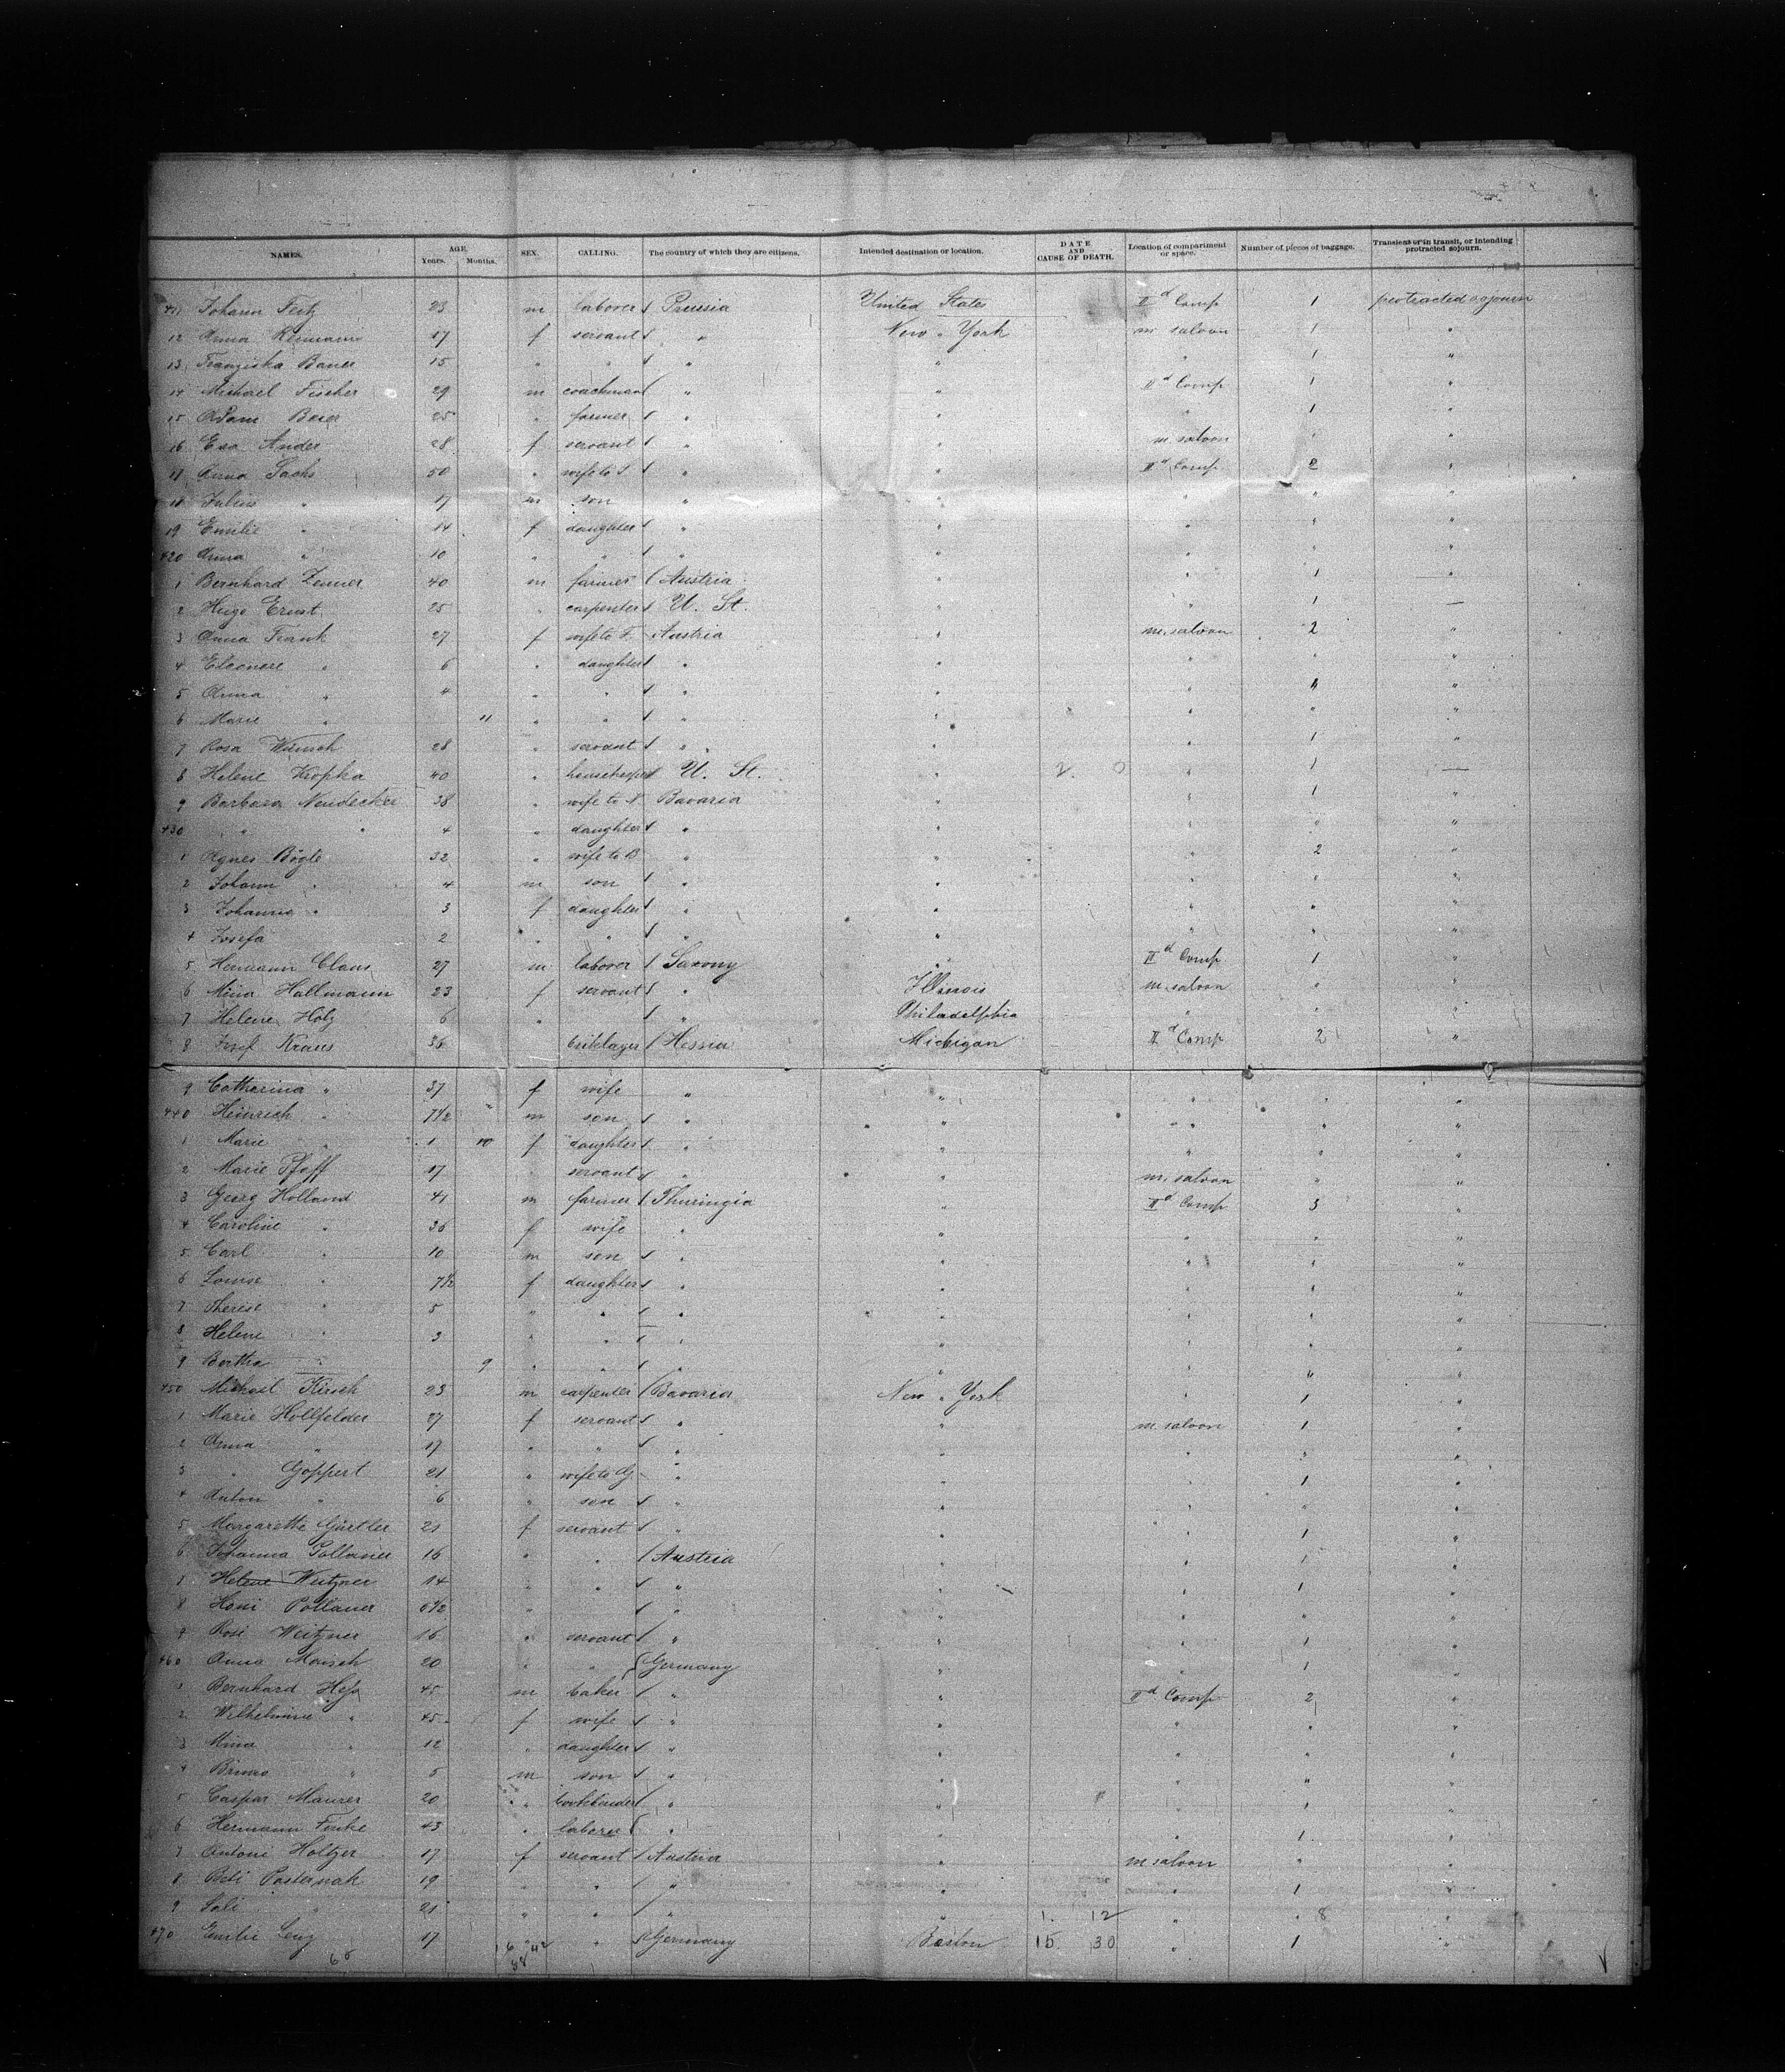 NAMES. AGE. Years. Months. SEX. CALLING. The country of which they are citizens. Intended destination or location. DATE AND CAUSE OF DEATH. Location of compartment or space. Number of pieces of baggage. Transient or in transit, or intending protracted sojourn.
411 Johann 23 m laborer / Prussia United States IId Comp 1 protracted sojourn
12 Anna Reimann 17 f servant / " New York m saloon 1 "
13 Franziska Bauer 15 " " / " " " 1 "
14 Michael Fischer 29 m coachman / " " IId Comp 1 "
15 Adam Baier 25 " farmer / " " " 1 "
16 Eva Ander 28 f servant / " " m saloon " "
17 Anna Sachs 50 " wife to S / " " IId Comp 2 "
18 Julius " 17 m son " " " " "
19 Emilie " 14 f daughter / " " " " "
420 Anna " 10 " " / " " " " "
1 Bernhard Zenner 40 m farmer / Austria " " 1 "
2 Hugo Ernst 25 " carpenter / U. St. " " 1 —
3 Anna Frank 27 f wife to F. Austria " m. saloon 2 "
4 Eleonore " 6 " daughter / " " " " "
5 Anna " 4 " " / " " " " "
6 Marie " 11 " " / " " " " "
7 Rosa Wunsch 28 " servant / " " " 1 "
8 Helene Kropka 40 " housekeeper / U. St. " 2. 0 " 1 —
9 Barbara Neudecker 38 " wife to N. Bavaria " " 1 "
430 " " 4 " daughter / " " " " "
1 Agnes Bögle 32 " wife to B " " " 2 "
2 Johann " 4 m son / " " " " "
3 Johanna " 3 f daughter / " " " " "
4 Josefa 2 " " / " " " " "
5 Hermann Claus 27 m laborer / Saxony " IId Comp 1 "
6 Mina Hallmann 23 f servant / " Illinois m. saloon " "
7 Helene Holz 6 " / " Philadelphia " " "
8 Josef Kraus 36 briklayer / Hessia Michigan IId Comp 2 "
9 Catherina " 37 f wife " " " " "
440 Heinrich " 7 1/2 m son / " " " " "
1 Marie " 1 10 f daughter / " " " " "
2 Marie Pfaff 17 servant / " " m. saloon " "
3 Georg Holland 41 m farmer / Thuringia " IId Comp 3 "
4 Caroline " 36 f wife " " " " "
5 Carl " 10 m son / " " " " "
6 Louise " 7 1/2 f daughter / " " " " "
7 Therese " 5 " " / " " " " "
8 Helene " 3 " " / " " " " "
9 Bertha " 9 " " / " " " " "
450 Michael Kirsch 23 m carpenter / Bavaria New York " 1 "
1 Marie Hollfelder 27 f servant / " " m saloon 1 "
2 Anna " 17 " " / " " " " "
3 " Goppert 21 " wife to G " " " 1 "
4 Anton " 6 " son / " " " " "
5 Margarethe Gürtler 21 f servant / " " " 1 "
6 Johanna Pollauer 16 " " / Austria " " 1 "
7 Helene Weitzner 14 " " / " " " 1 "
8 Hani Pollauer 6 1/2 " / " " " " "
9 Rosi Weitzner 16 " servant / " " " 1 "
460 Anna Mansch 20 " " / Germany " " 1 "
1 Bernhard Heß 45 m baker / " " IId Comp 2 "
2 Wilhelmine " 45 f wife / " " " " "
3 Mina " 12 " daughter / " " " " "
4 Bruno " 5 m son / " " " " "
5 Caspar Maurer 20 " bookbinder / " " " 1 "
6 Hermann 43 " laborer / " " " 1 "
7 Antoni Holtzer 17 f servant / Austria " m saloon " "
8 Beti Pasternak 19 " " / " " " 1 "
9 Sali " 21 " " / " " 1. 12 " " 8 "
470 Emilie Lenz 17 " " / Germany Boston 15 30 " 1 "